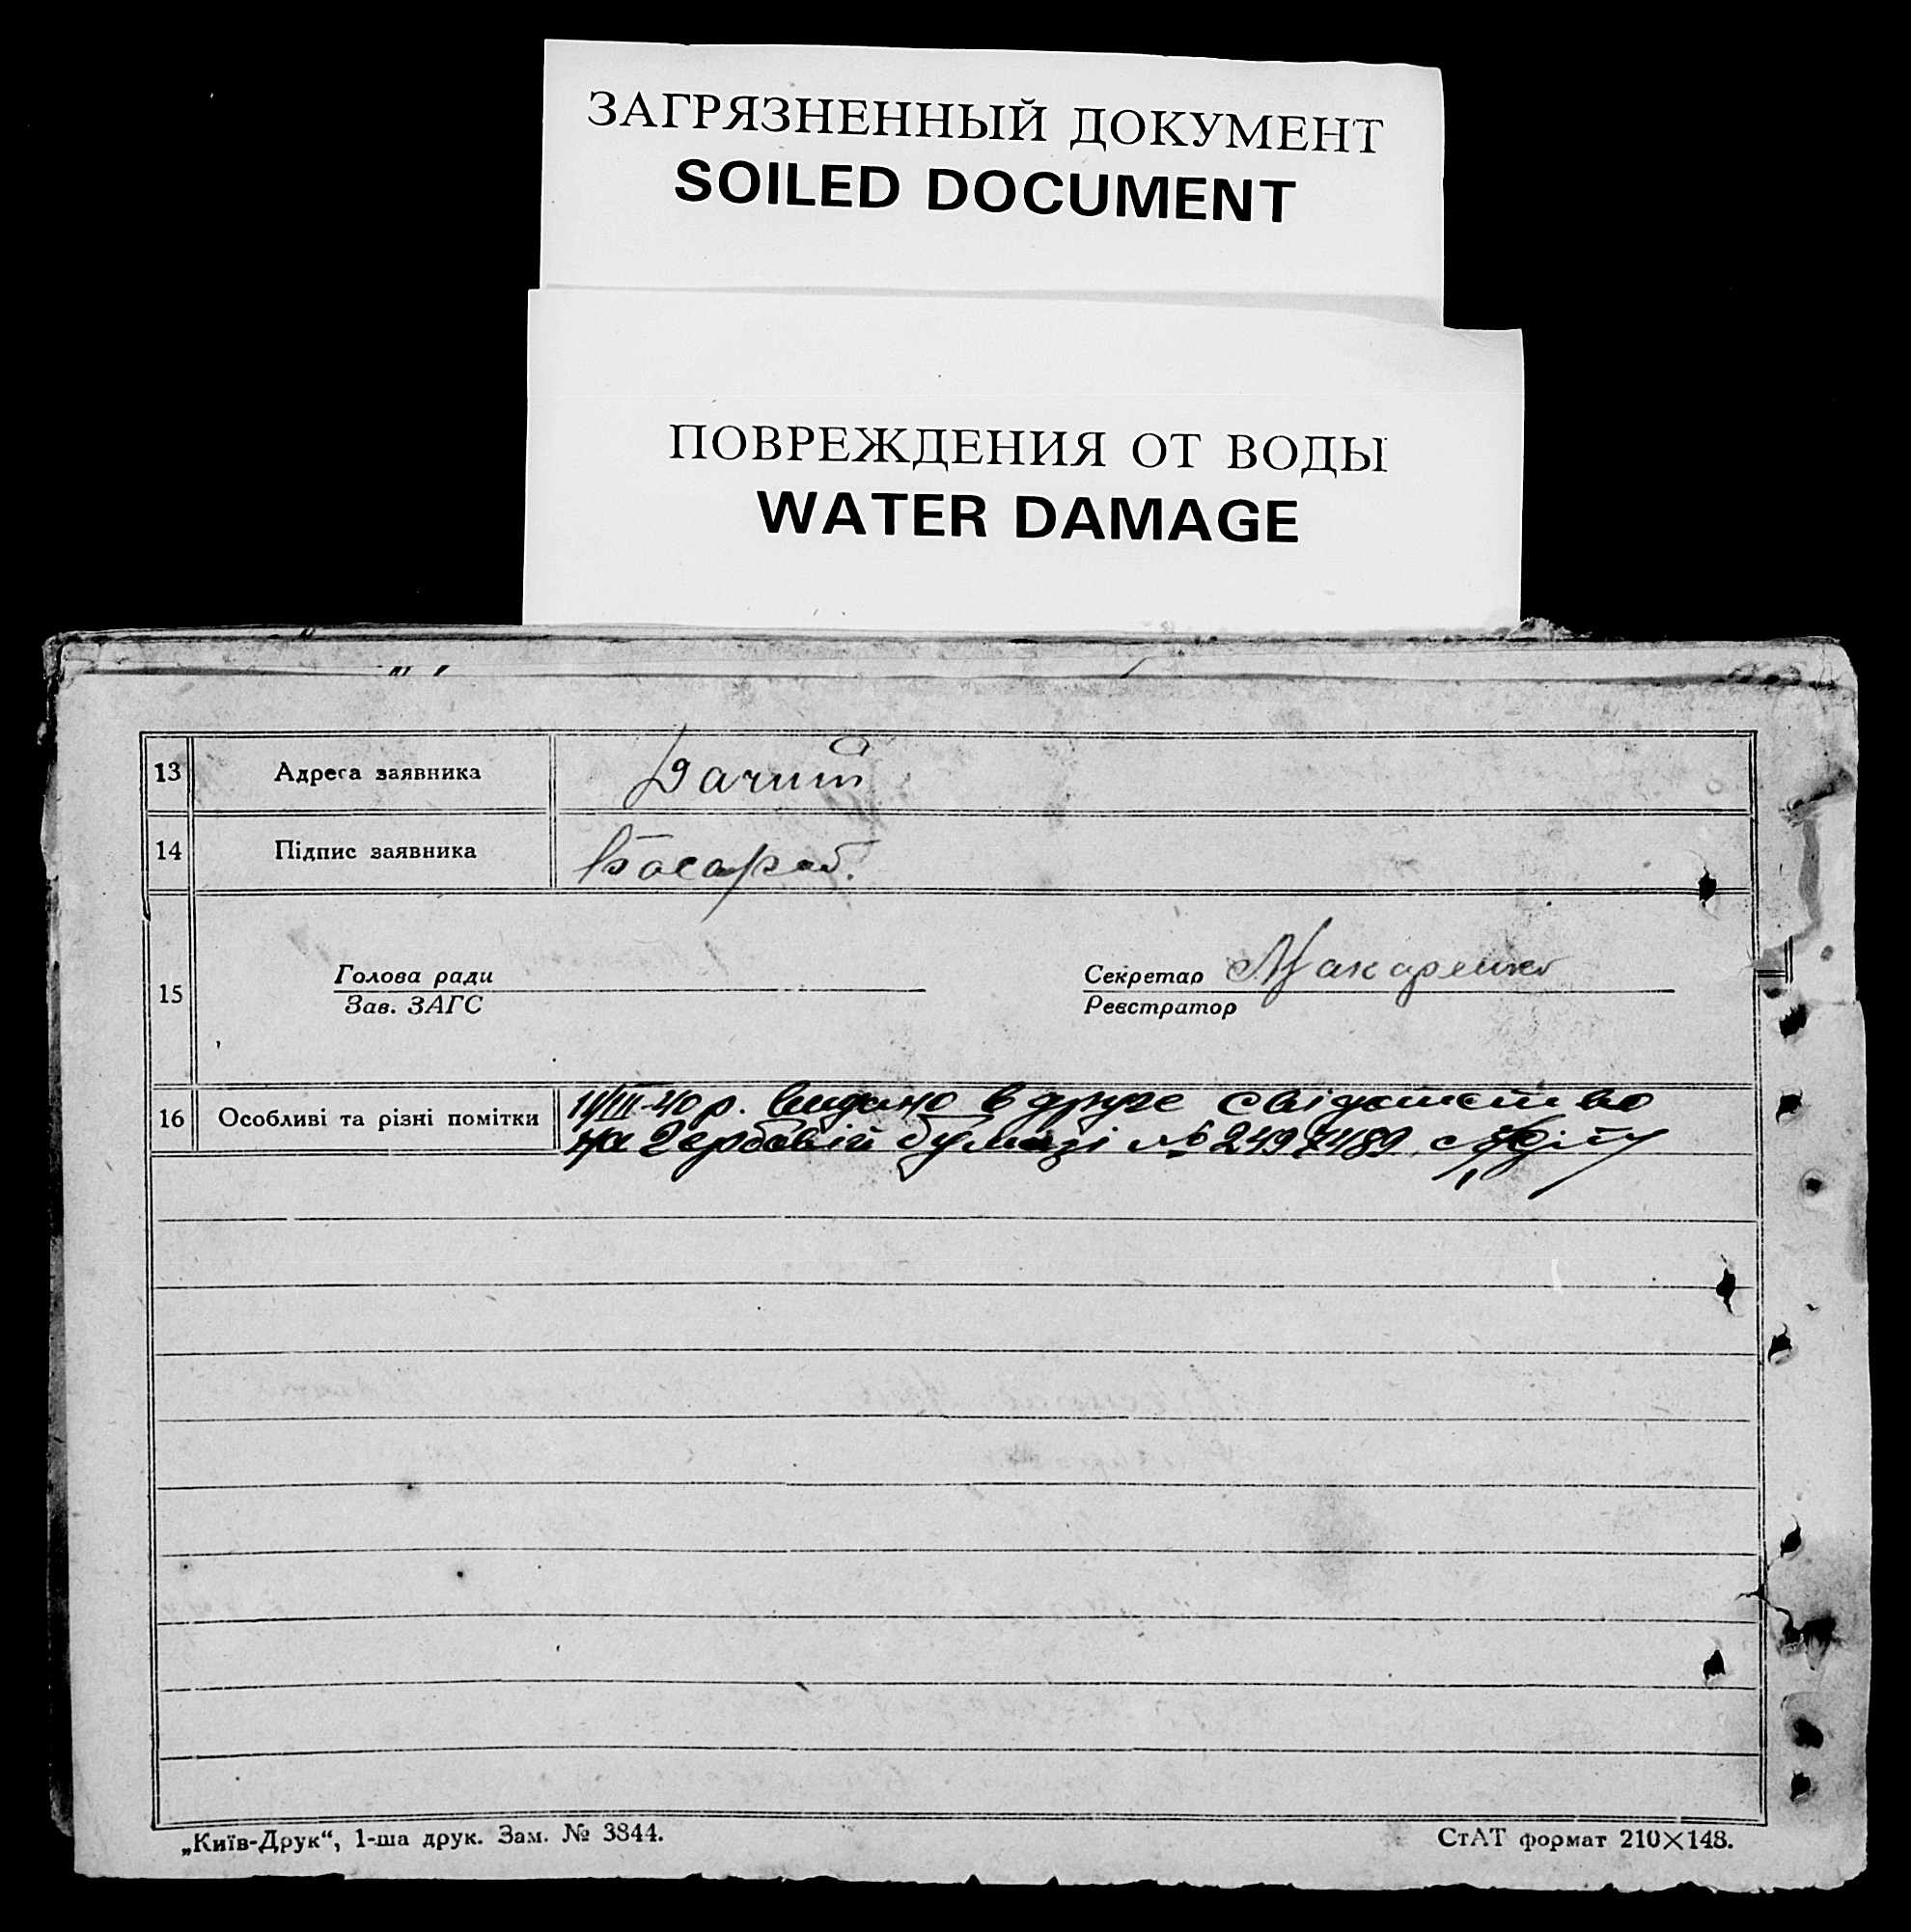 ЗАГРЯЗНЕННЫЙ ДОКУМЕНТ
SOILED DOCUMENT
ПОВРЕЖДЕНИЯ ОТ ВОДЫ
WATER DAMAGE
13 Адреса заявника
14 Підпис заявника Басараб.
15 Голова ради Секретар Макаренко
Зав. ЗАГС Реєстратор
16 Особливі та різні помітки 11/III-40 р. видано в друге свідотство
на гербовій бумазі № 2497489
„Київ-Друк“, 1-ша друк. Зам. № 3844. СтАТ формат 210×148.